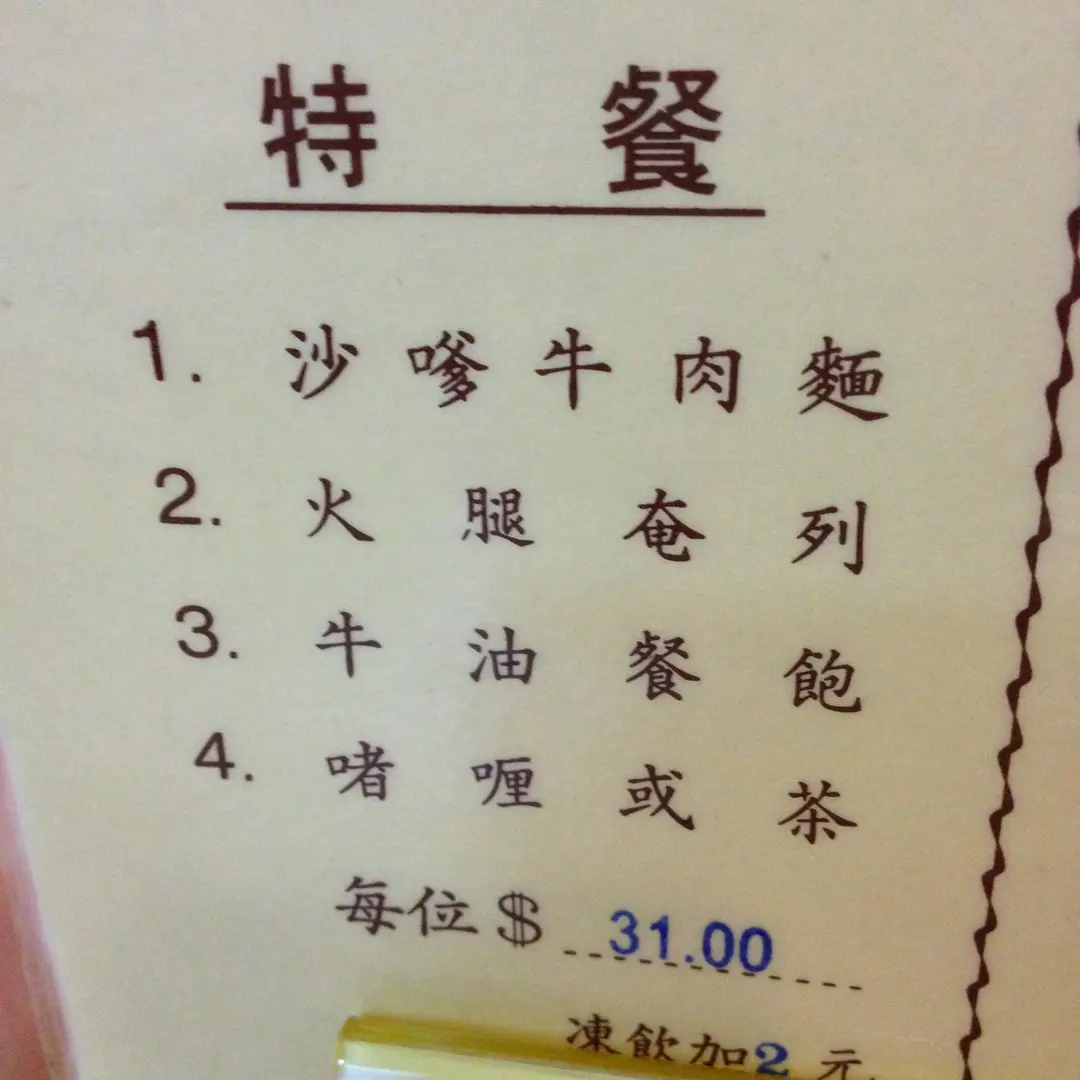 特餐
1. 沙嗲牛肉麵
2. 火腿奄列
3. 牛油餐飽
4. 啫喱或茶
每位$ 31.00
凍飲加2元